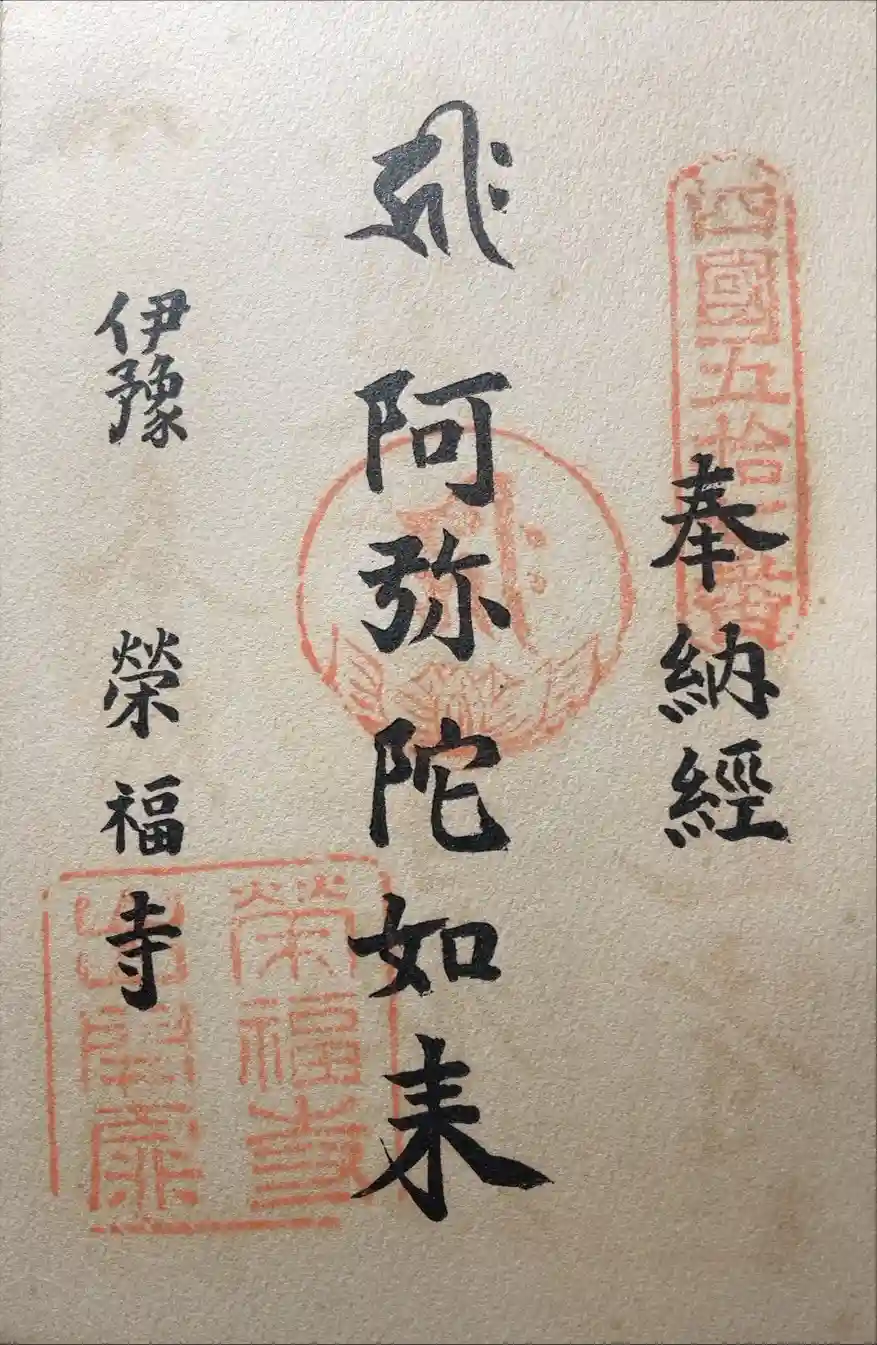 奉納經
𑖮𑖿𑖨𑖱𑖾 阿弥陀如来
伊豫 榮福寺
四國五拾七番
榮福寺